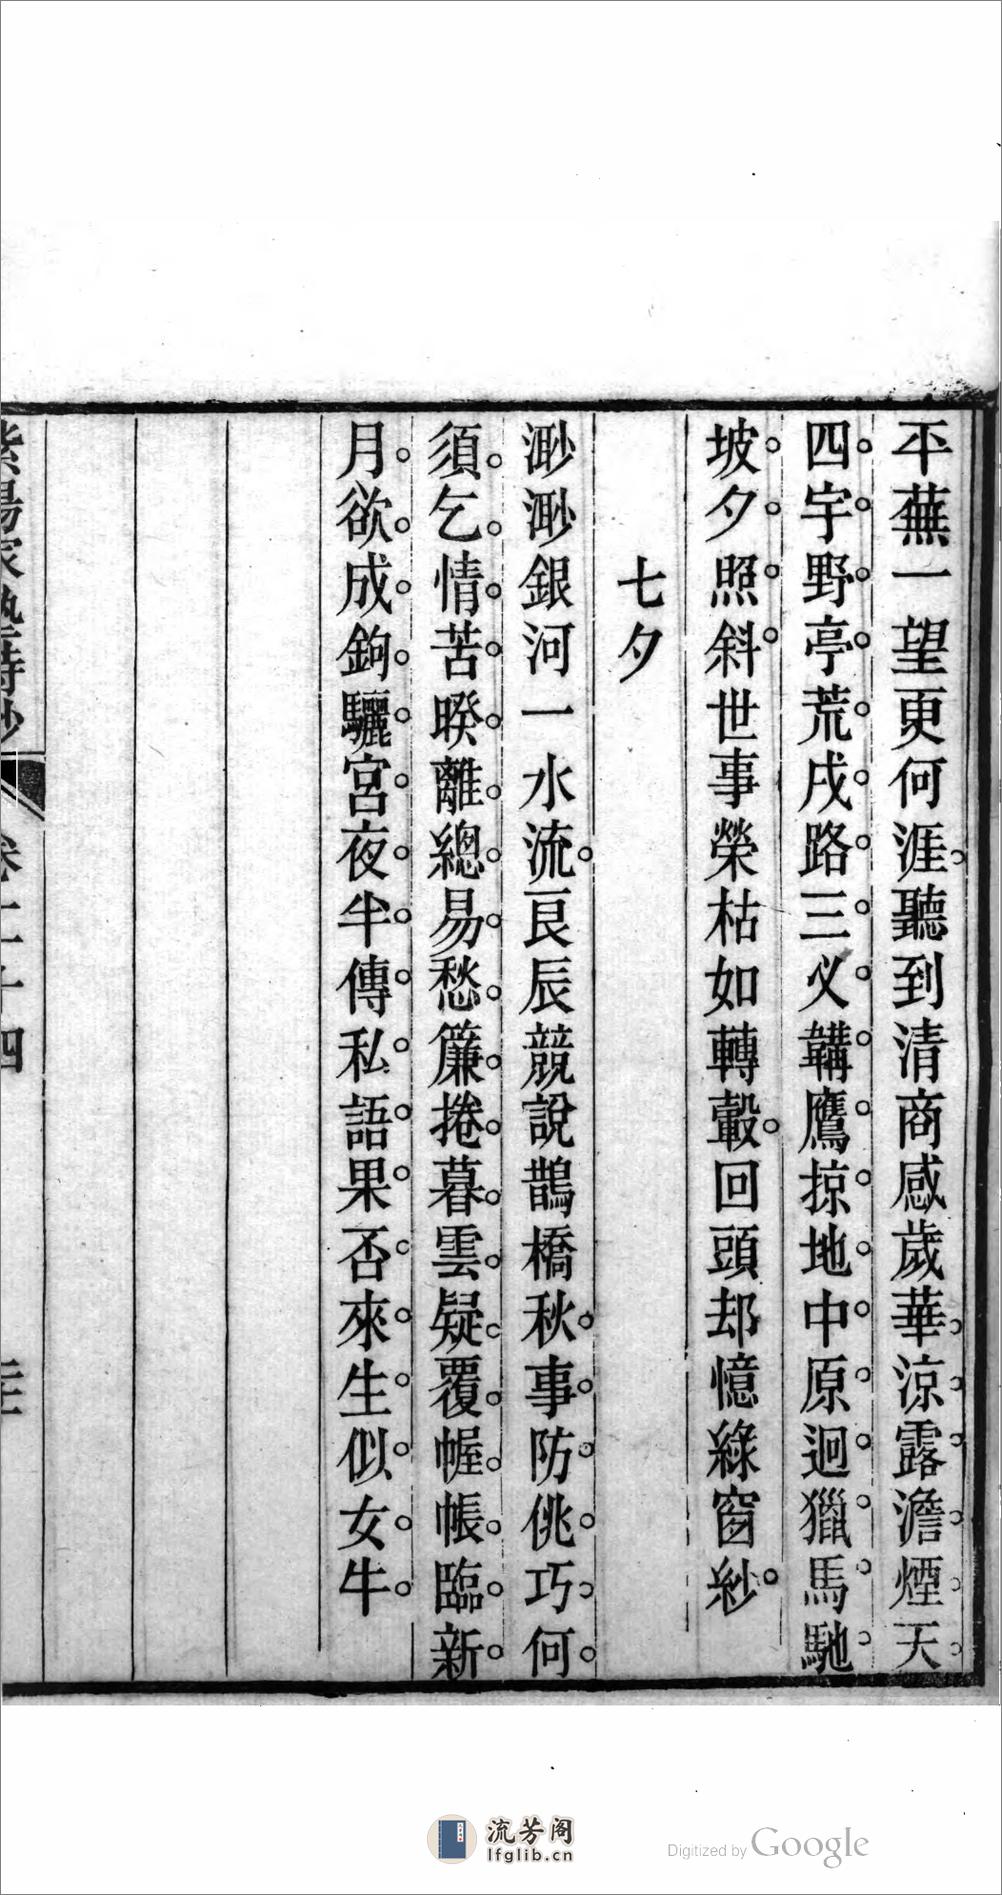 平蕪一望更何涯聽到清商感歲華涼露澹煙天
四宇野亭荒戍路三义韝鷹掠地中原迥獵馬馳
坡夕照斜世事榮枯如轉轂回頭却憶綠窗紗
七夕
渺渺銀河一水流良辰競說鵲橋秋事防佻巧何
須乞情苦暌離總易愁簾捲暮雲疑覆幄帳臨新
月欲成鉤驪宮夜半傳私語果否來生似女牛
紫陽家塾詩鈔
卷二十四
流芳阁
lfglib.cn
Digitized by Google